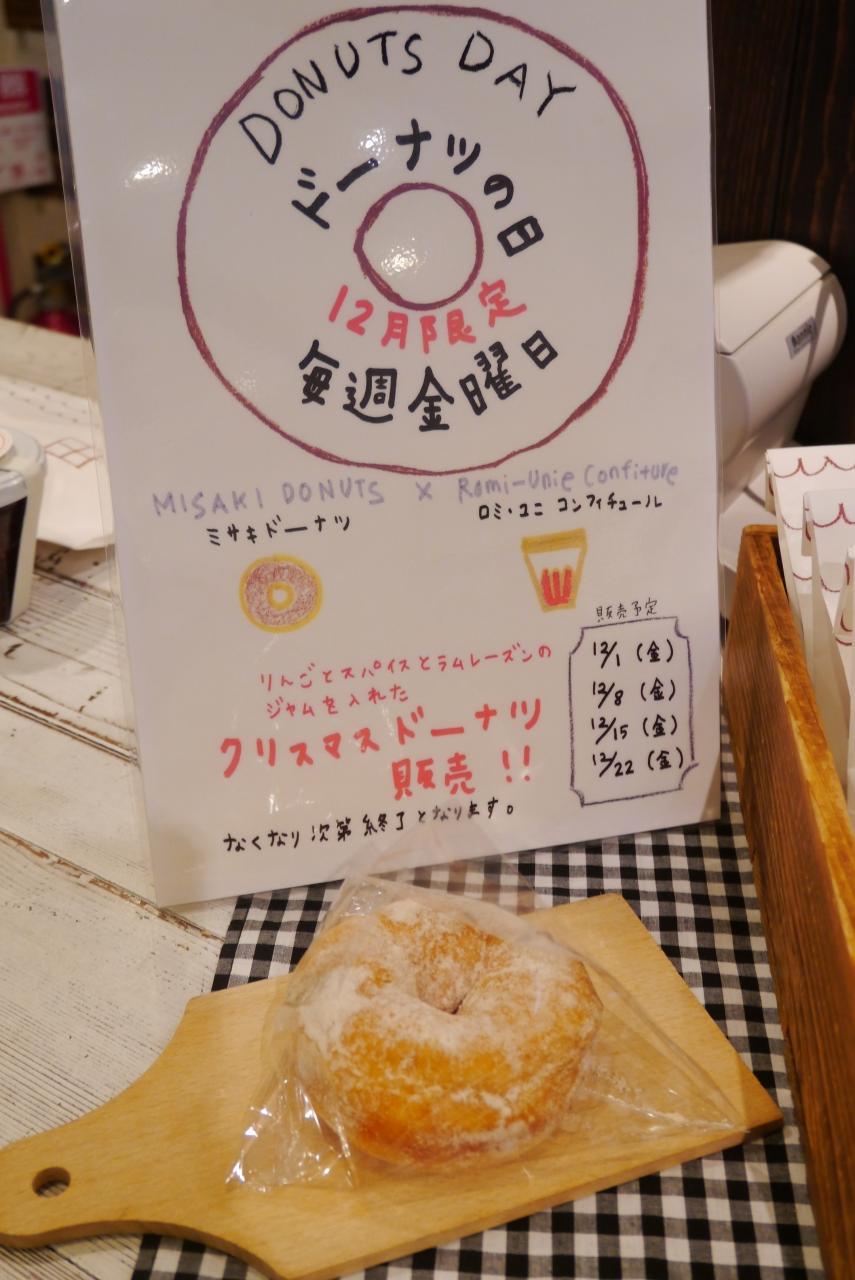 DONUTS DAY
ドーナツの日
12月限定
毎週金曜日
MISAKI DONUTS × Romi-Unie Confiture
ミサキドーナツ
ロミ・ユニ コンフィチュール
りんごとスパイスとラムレーズンの
ジャムを入れた
クリスマスドーナツ
販売!!
なくなり次第終了となります。
販売予定
12/1(金)
12/8(金)
12/15(金)
12/22(金)